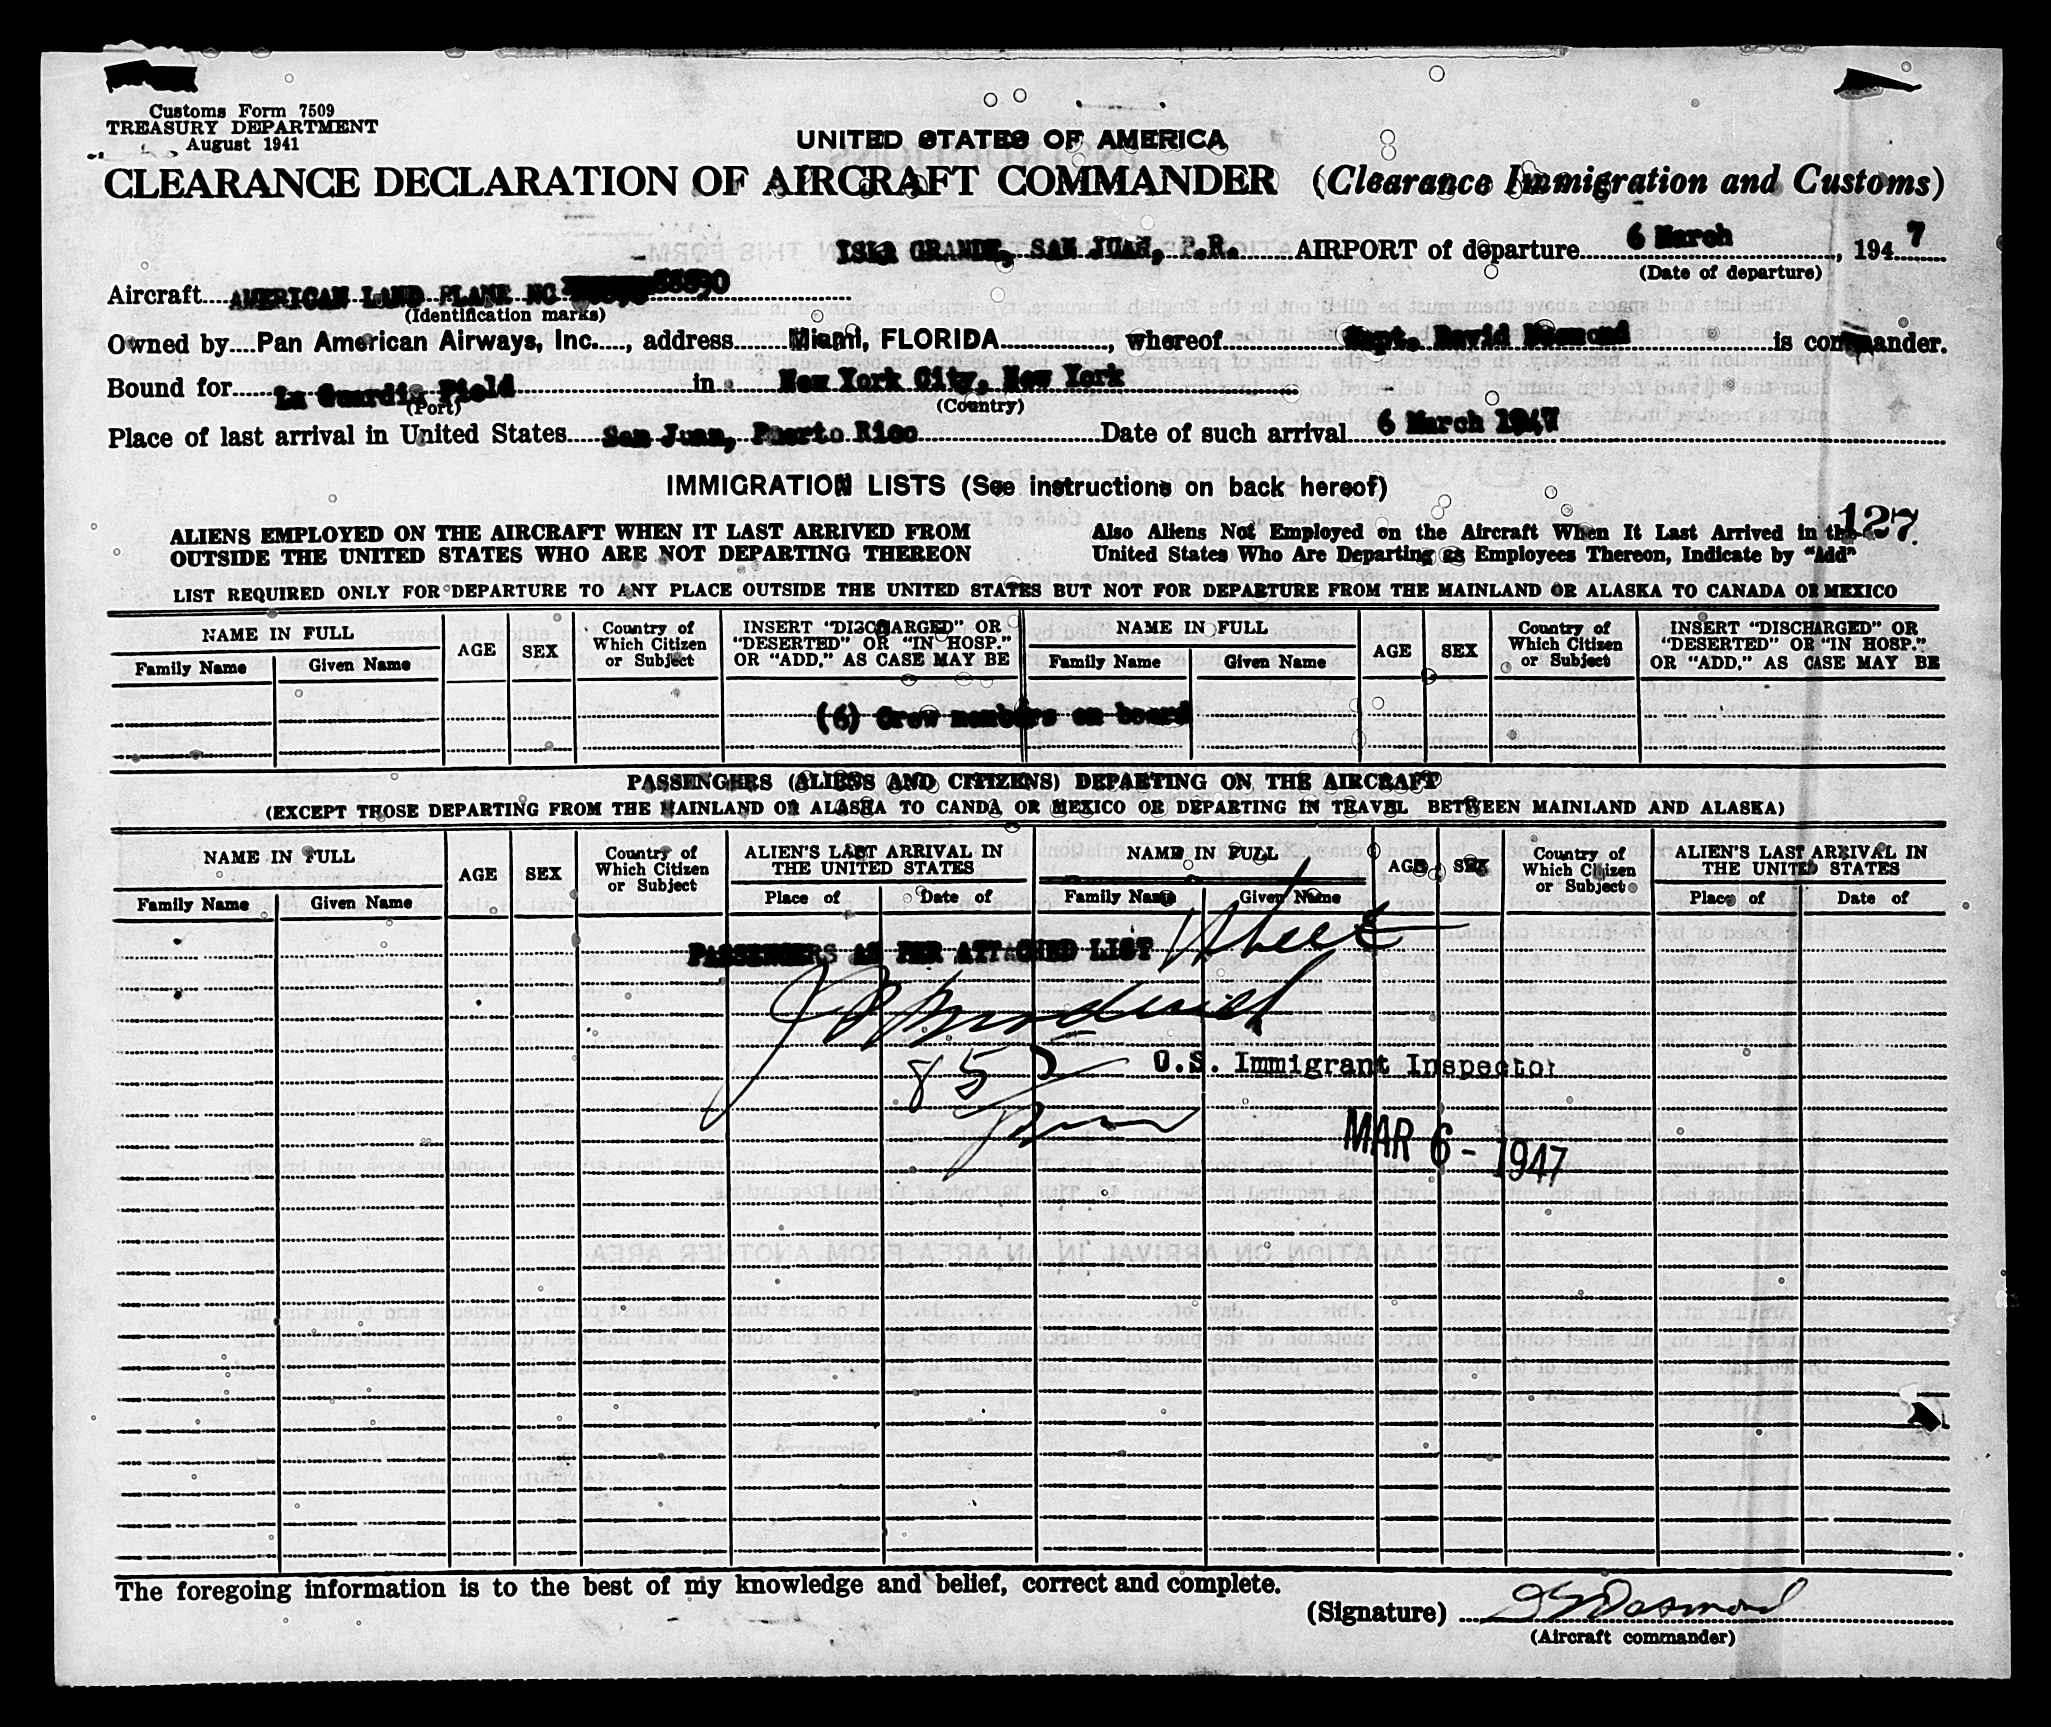 Customs Form 7509
TREASURY DEPARTMENT
August 1941
UNITED STATES OF AMERICA
CLEARANCE DECLARATION OF AIRCRAFT COMMANDER (Clearance Immigration and Customs)
ISLA GRANDE, SAN JUAN, P.R. AIRPORT of departure 6 March, 1947
(Date of departure)
Aircraft AMERICAN LAND PLANE NC 88890
(Identification marks)
Owned by Pan American Airways, Inc., address Miami, FLORIDA, whereof Capt. David Desmond is commander.
Bound for La Guardia Field in New York City, New York
(Port) (Country)
Place of last arrival in United States San Juan, Puerto Rico Date of such arrival 6 March 1947
IMMIGRATION LISTS (See instructions on back hereof)
127
ALIENS EMPLOYED ON THE AIRCRAFT WHEN IT LAST ARRIVED FROM Also Aliens Not Employed on the Aircraft When It Last Arrived in the
OUTSIDE THE UNITED STATES WHO ARE NOT DEPARTING THEREON United States Who Are Departing as Employees Thereon, Indicate by "Add"
LIST REQUIRED ONLY FOR DEPARTURE TO ANY PLACE OUTSIDE THE UNITED STATES BUT NOT FOR DEPARTURE FROM THE MAINLAND OR ALASKA TO CANADA OR MEXICO
NAME IN FULL AGE SEX Country of Which Citizen or Subject INSERT "DISCHARGED" OR "DESERTED" OR "IN HOSP." OR "ADD," AS CASE MAY BE NAME IN FULL AGE SEX Country of Which Citizen or Subject INSERT "DISCHARGED" OR "DESERTED" OR "IN HOSP." OR "ADD," AS CASE MAY BE
Family Name Given Name Family Name Given Name
(6) Crew members on board
PASSENGERS (ALIENS AND CITIZENS) DEPARTING ON THE AIRCRAFT
(EXCEPT THOSE DEPARTING FROM THE MAINLAND OR ALASKA TO CANDA OR MEXICO OR DEPARTING IN TRAVEL BETWEEN MAINLAND AND ALASKA)
NAME IN FULL AGE SEX Country of Which Citizen or Subject ALIEN'S LAST ARRIVAL IN THE UNITED STATES NAME IN FULL AGE SEX Country of Which Citizen or Subject ALIEN'S LAST ARRIVAL IN THE UNITED STATES
Family Name Given Name Place of Date of Family Name Given Name Place of Date of
PASSENGERS AS PER ATTACHED LIST
85
U.S. Immigrant Inspector
MAR 6 - 1947
The foregoing information is to the best of my knowledge and belief, correct and complete.
(Signature) Desmond
(Aircraft commander)